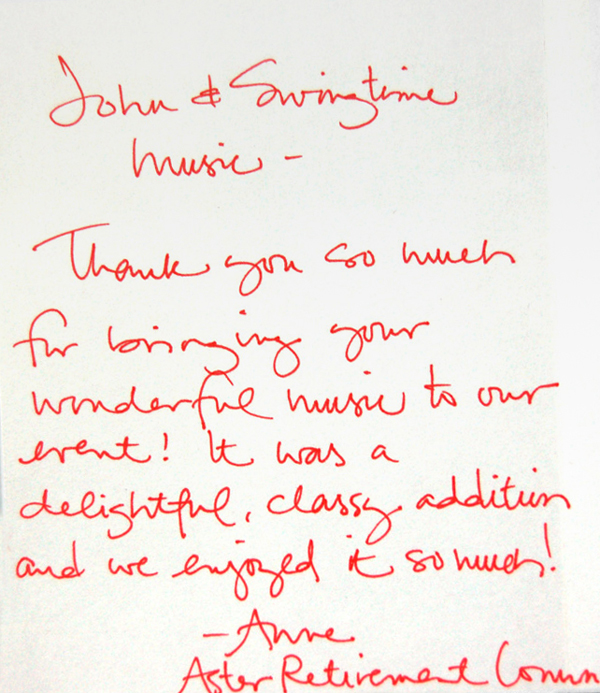 John & Swingtime
Music -
Thank you so much
for bringing your
wonderful music to our
event! It was a
delightful, classy addition
and we enjoyed it so much!
- Anne
Aster Retirement Commun